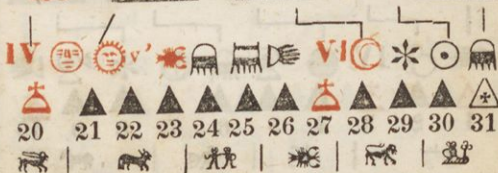 IV v' VI
20 21 22 23 24 25 26 27 28 29 30 31